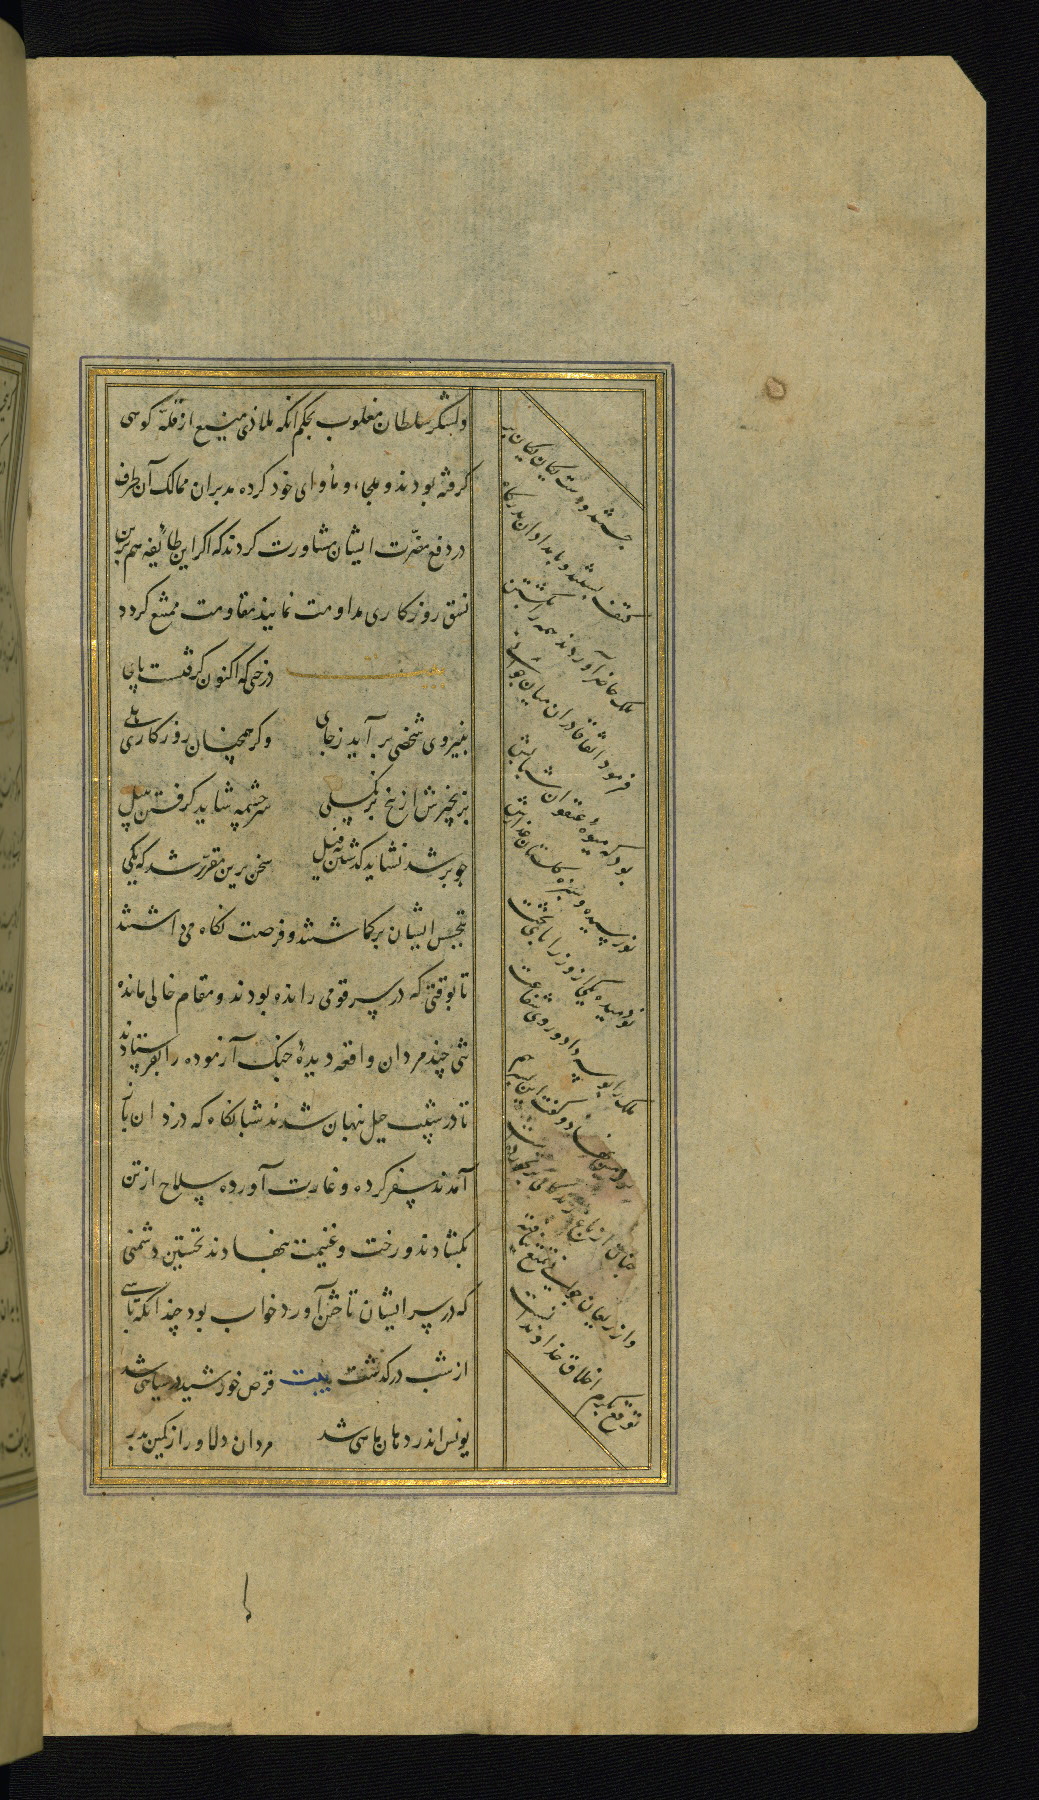 ولشکر سلطان مغلوب بحکم آنکه ملاذی منیع از قله کوهی
گرفته بودند و ملجاء و مأوای خود کرده مدبران ممالک آن طرف
در دفع مضرّت ایشان مشاورت کردند که اگر این طائفه هم برین
نسق روزگاری مداومت نمایند مقاومت ممتنع گردد
درختی که اکنون گرفتست پای
بنیروی شخصی برآید ز جای وگر همچنان روزگاری هلی
بزنجیرش از بیخ بر نگسلی سر چشمه شاید گرفتن ببیل
چو پر شد نشاید گذشتن به پیل سخن برین مقرّر شد که یکی
بتجسس ایشان برگماشتند و فرصت نگاه می داشتند
تا بوقتی که در سر قومی رانده بودند و مقام خالی مانده
تنی چند مردان واقعه دیدهٔ جنگ آزموده را بفرستادند
تا در شعب جبل نهان شدند شبانگاه که دزدان باز
آمدند سفر کرده و غارت آورده سلاح از تن
بگشادند و رخت و غنیمت بنهادند نخستین دشمنی
که در سر ایشان تاختن آورد خواب بود چندانکه پاسی
از شب درگذشت بیت قرص خورشید در سیاهی شد
یونس اندر دهان ماهی شد مردان دلاور از کمین بدر
جستند و دست یکان یکان بر
کتف بستند و بامدادان بدرگاه
ملک حاضر آوردند همه را بکشتن
فرمود اتفاقا در آن میان جوانی
بود که میوهٔ عنفوان شبابش
نورسیده و سبزه گلستان عذارش
نودمیده یکی از وزرا پای تخت
ملک را بوسه داد و روی شفاعت
بر زمین نهاد و گفت این پسر هم
چنان از باغ زندگانی بر نخورده
و از ریعان جوانی تمتع نیافته
توقع بکرم اخلاق خداوندانست